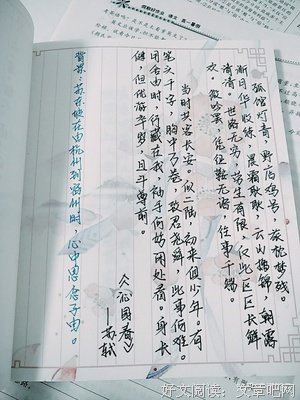 孤馆灯青,野店鸡号,旅枕梦残。
渐月华收练,晨霜耿耿,云山摛锦,朝露
漙漙。世路无穷,劳生有限,似此区区长鲜
欢。微吟罢,凭征鞍无语,往事千端。
当时共客长安。似二陆,初来俱少年。有
笔头千字,胸中万卷,致君尧舜,此事何难。
用舍由时,行藏在我,袖手何妨闲处看。身长
健,但优游卒岁,且斗尊前。
《沁园春》
——苏轼
背景:苏东坡在由杭州到密州时,心中思念子由。
好文阅读,文章吧网